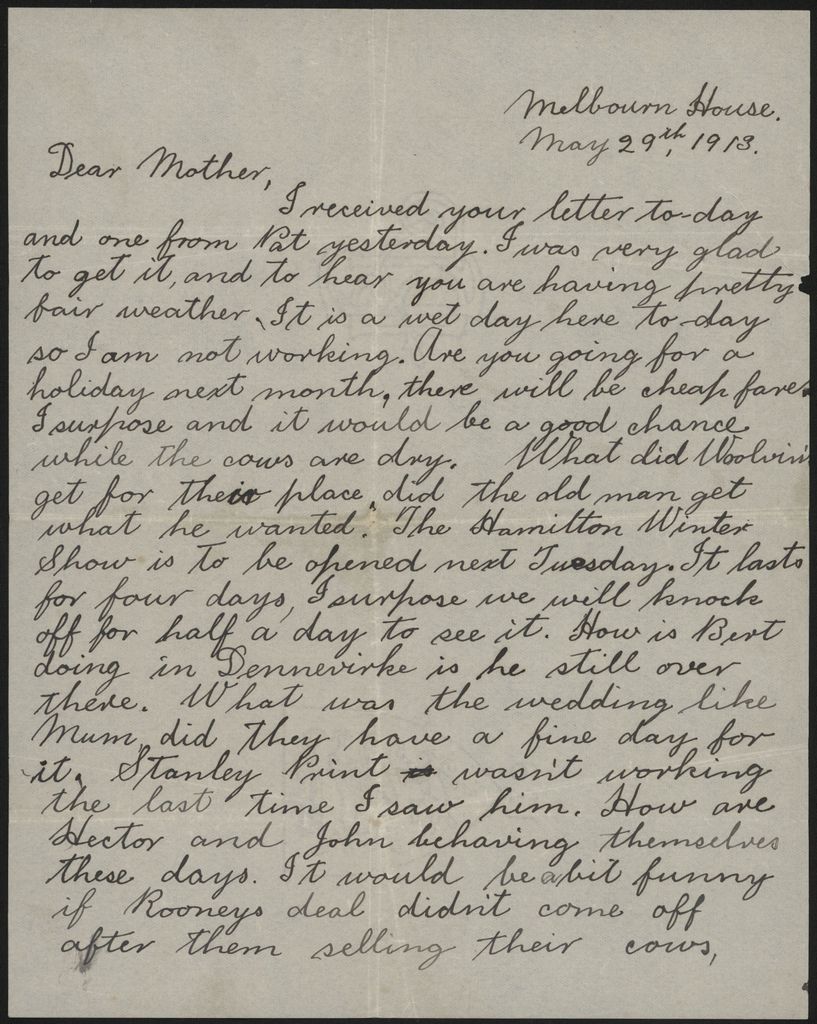 Melbourn House.
May 29th, 1913.
Dear Mother,
I received your letter to-day
and one from Pat yesterday. I was very glad
to get it, and to hear you are having pretty
fair weather. It is a wet day here to-day
so I am not working. Are you going for a
holiday next month, there will be cheap fares
I surpose and it would be a good chance
while the cows are dry. What did Woolvin's
get for their place, did the old man get
what he wanted. The Hamilton Winter
Show is to be opened next Tuesday. It lasts
for four days, I surpose we will knock
off for half a day to see it. How is Bert
doing in Dennevirke is he still over
there. What was the wedding like
Mum, did they have a fine day for
it. Stanley Print wasn't working
the last time I saw him. How are
Hector and John behaving themselves
these days. It would be a bit funny
if Rooneys deal didn't come off
after them selling their cows,